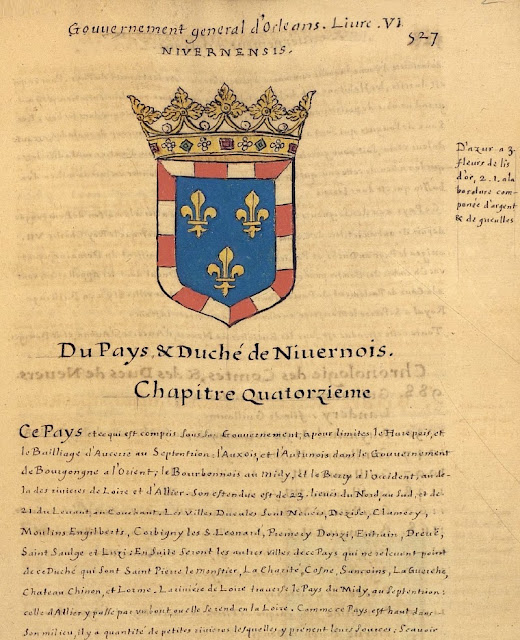 Gouvernement general d'Orleans. Livre. VI
527
NIVERNENSIS.
D'azur a 3.
fleurs de lis
d'or, 2. 1. a la
bordure com-
ponée d'argent
& de gueulles
Du Pays, & Duché de Nivernois.
Chapitre Quatorzieme
Ce Pays et ce qui est compris sous son Gouvernement, a pour limites le Hurepois, et
le Bailliage d'Aucerre au Septentrion: l'Auxois, et l'Autunois dans le Gouvernement
de Bourgongne a l'Orient; le Bourbonnois au Midy, et le Berry a l'Occident, au de-
la des rivieres de Loire et d'Allier. Son estendue est de 23. lieues du Nord, au Sud, et de
21. du Levant, au Couchant. Les Villes Ducales sont Nevers, Dezise, Clamecy,
Moulins Engilberts, Corbigny les S. Leonard, Premecy Donzi, Entrain, Dreve,
Saint Saulge et Liszi: En suite seront les autres villes de ce Pays qui ne relevent point
de ce Duché qui sont Saint Pierre le Monstier, La Charite, Cosne, Sancoins, La Guerche,
Chateau Chinon, et Lorme. La riviere de Loire traverse le Pays du Midy, au Septentrion:
celle d'Allier y passe par un bout, ou elle se rend en la Loire. Comme ce Pays est haut dans
son milieu, il y a quantité de petites rivieres lesquelles y prenent leurs sources; Scavoir